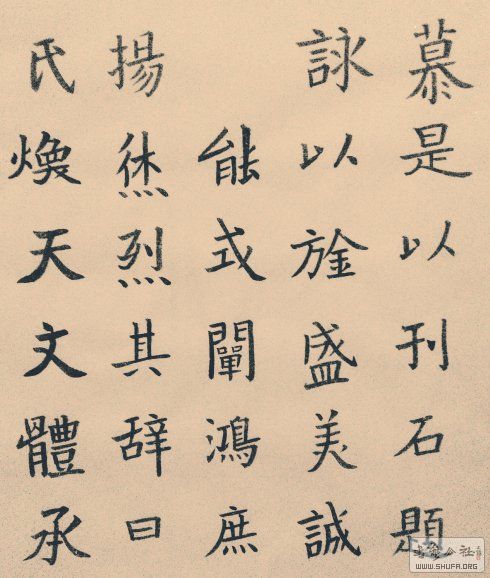 慕是以刊石題
詠以旌盛美誠
能式闡鴻庶
揚烋烈其辞曰
氏煥天文體承
WWW.SHUFA.ORG